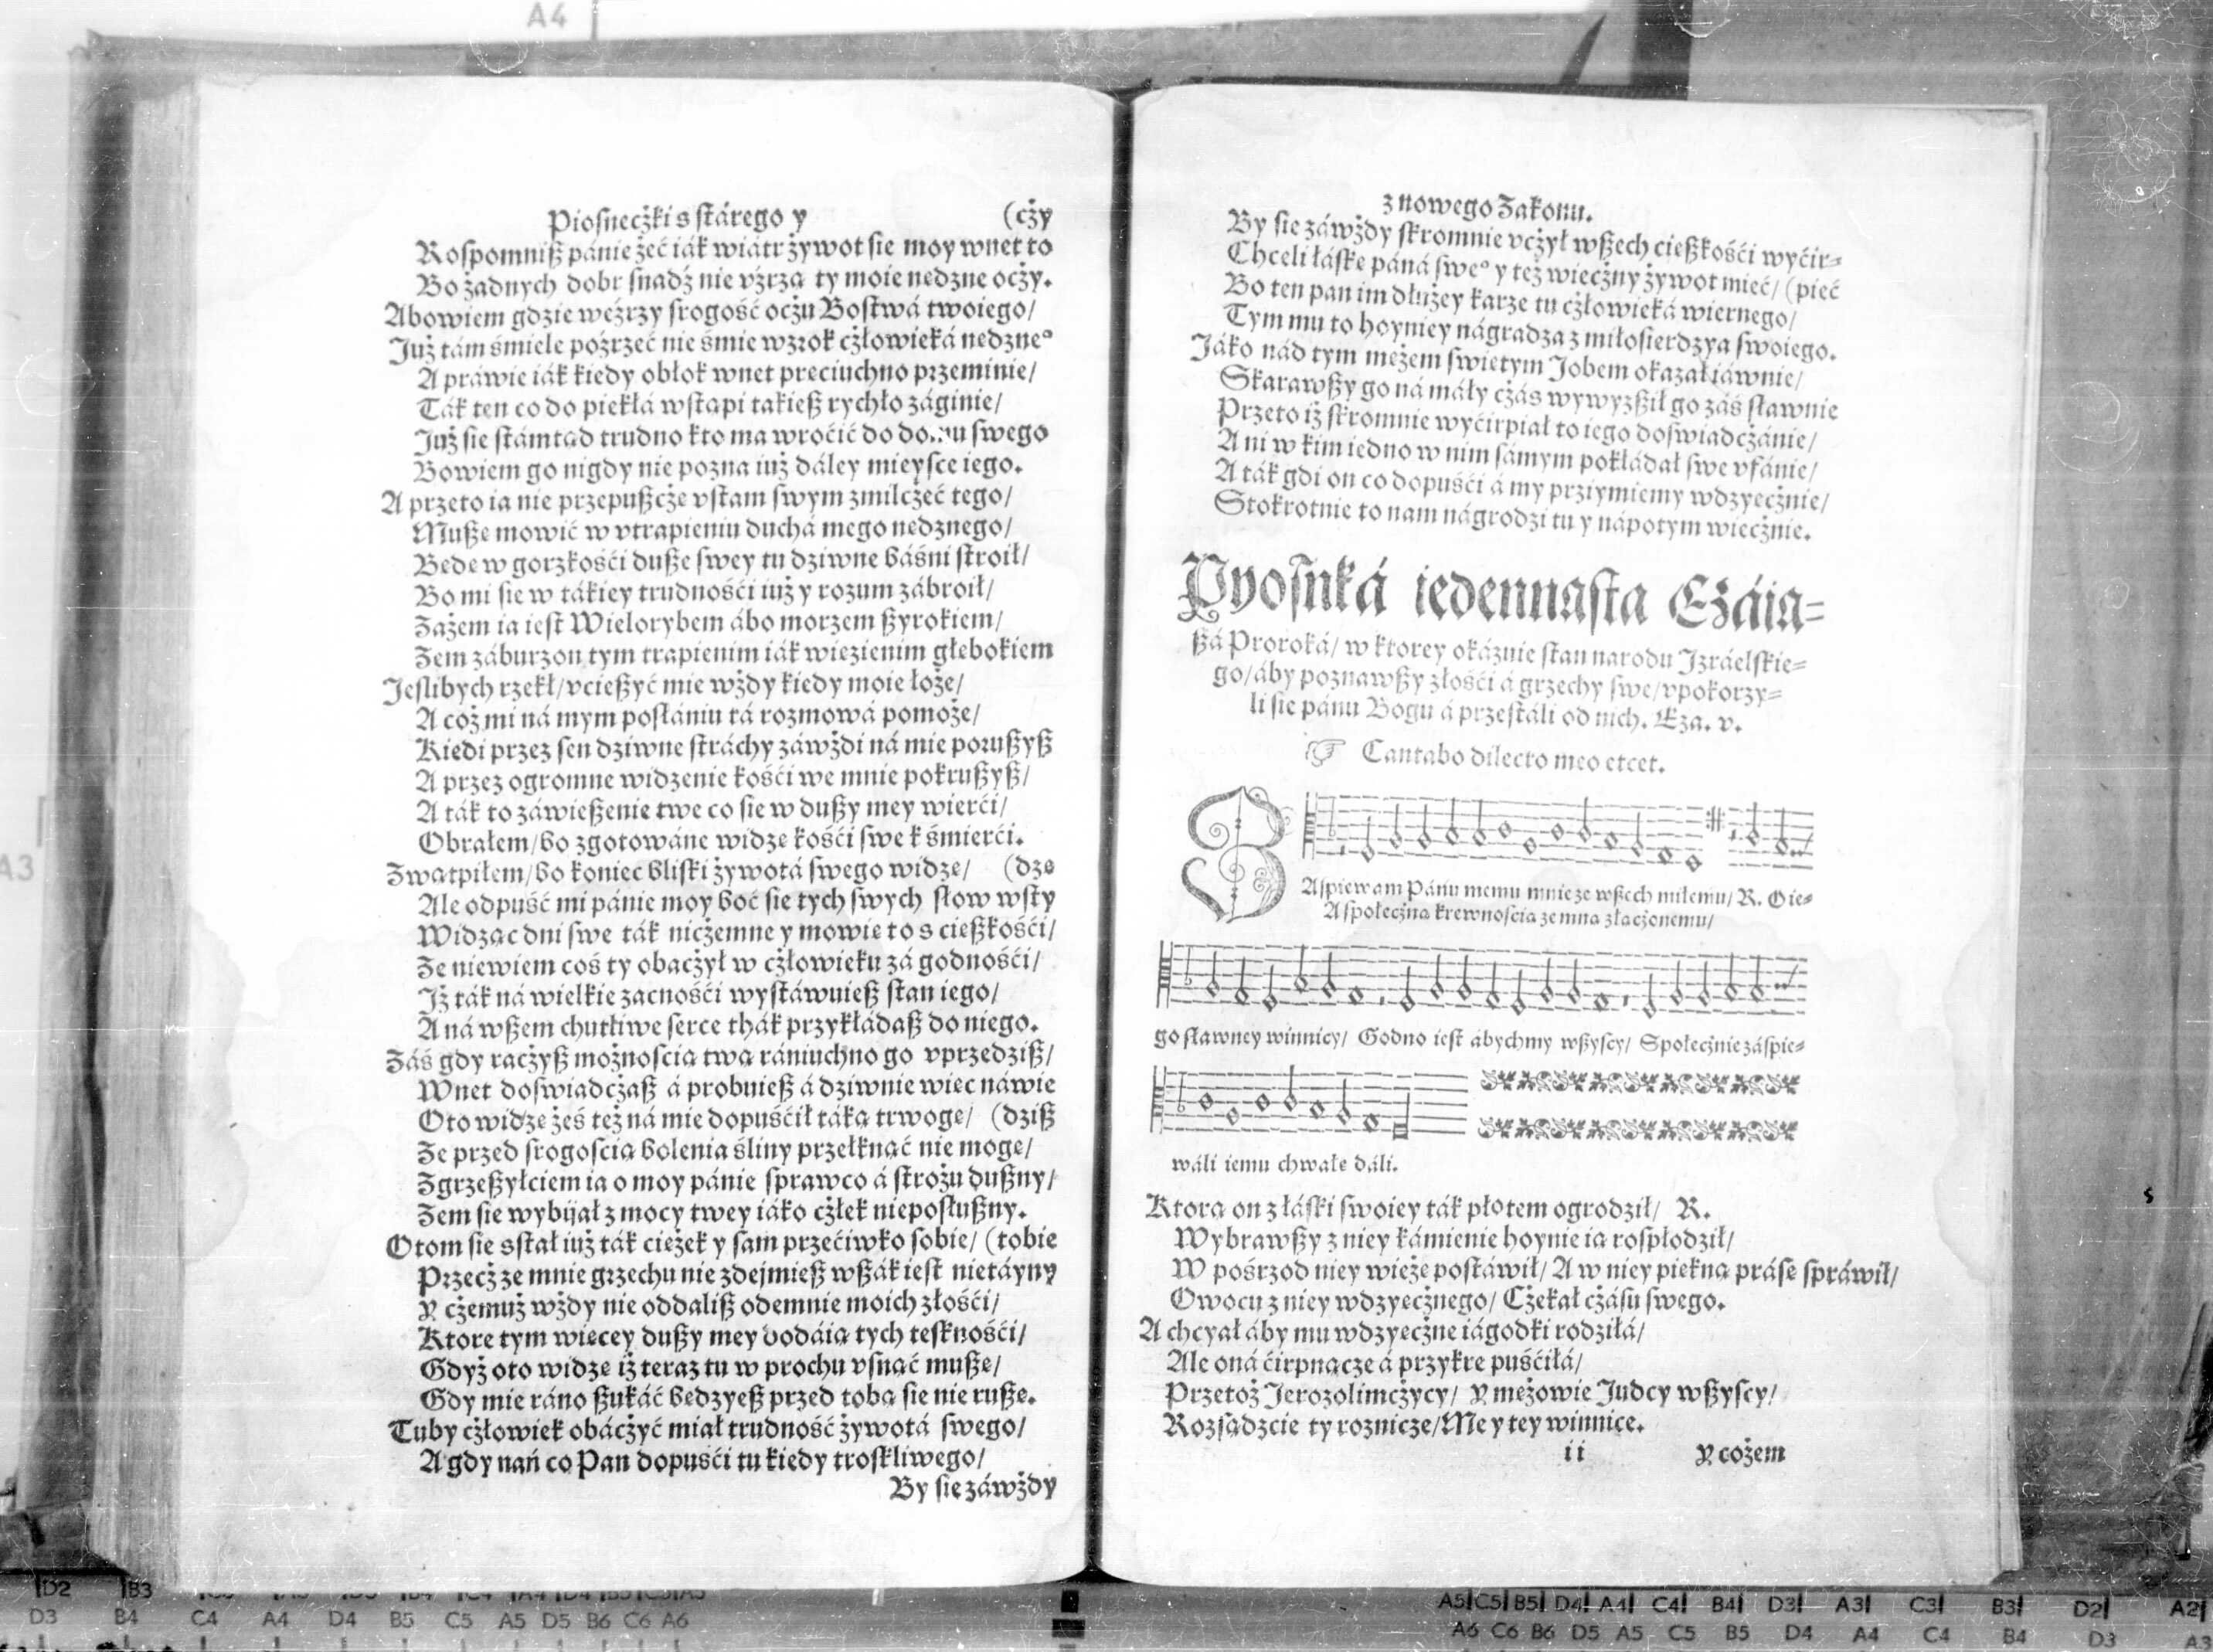 Piosnecżki s stárego y (cży
Rospomniß pánie żeć iák wiátr żywot sie moy wnet to
Bo żadnych dobr snadź nie vźrzą ty moie nędzne ocży.
Abowiem gdzie weźrzy srogość ocżu Bostwá twoiego/
Już tám śmiele poźrzeć nie śmie wzrok cżłowieká nędzneº
A práwie iák kiedy obłok wnet preciuchno przeminie/
Ták ten co do piekłá wstąpi tákież rychło záginie/
Już sie stámtąd trudno kto ma wroćić do domu swego
Bowiem go nigdy nie pozna iuż dáley mieysce iego.
A przeto ia nie przepußcże vstam swym zmilcżeć tego/
Muße mowić w vtrapieniu duchá mego nędznego/
Bede w gorzkośći duße swey tu dziwne báśni stroił/
Bo mi sie w tákiey trudnośći iuż y rozum zábroił/
Zażem ia iest Wielorybem ábo morzem ßyrokiem/
Zem záburzon tym trapienim iák więzienim głębokiem
Jeslibych rzekł/vcießyć mie wżdy kiedy moie łoże/
A coż mi ná mym posłániu tá rozmowá pomoże/
Kiedi przez sen dziwne stráchy záwżdi ná mie porußyß
A przez ogromne widzenie kośći we mnie pokrußyß/
A ták to záwießenie twe co sie w dußy mey wierći/
Obrałem/bo zgotowáne widze kośći swe k śmierći.
Zwątpiłem/bo koniec bliski żywotá swego widze/ (dze
Ale odpuść mi pánie moy boć sie tych swych słow wsty
Widząc dni swe ták nicżemne y mowie to s cießkośći/
Ze niewiem coś ty obacżył w cżłowieku zá godnośći/
Iż ták ná wielkie zacnośći wystáwuieß stan iego/
A ná wßem chutliwe serce thák przykłádaß do niego.
Záś gdy racżyß możnoscią twą rániuchno go vprzedziß/
Wnet doswiadcżaß á probuieß á dziwnie wiec náwie
Oto widze żeś też ná mie dopuśćił táką trwogę/ (dziß
Ze przed srogoscią bolenia śliny przełknąć nie mogę/
Zgrzeßyłciem ia o moy pánie sprawco á strożu dußny/
Zem sie wybijał z mocy twey iáko cżłek nieposłußny.
Otom sie sstał iuż ták cieżek y sam przećiwko sobie/ (tobie
Przecż ze mnie grzechu nie zdejmieß wßák iest nietáyny
Y cżemuż wżdy nie oddaliß odemnie moich złośći/
Ktore tym wiecey dußy mey dodáią tych tesknośći/
Gdyż oto widze iż teraz tu w prochu vsnąć muße/
Gdy mie ráno ßukáć bedzyeß przed tobą sie nie ruße.
Tuby cżłowiek obácżyć miał trudność żywotá swego/
A gdy nań co Pan dopuśći tu kiedy troskliwego/
By sie záwżdy
z nowego Zakonu.
By sie záwżdy skromnie vcżył wßech cießkośći wyćir=
Chceli łáske páná sweº y też wiecżny żywot mieć/ (pieć
Bo ten pan im dłużey karze tu cżłowieká wiernego/
Tym mu to hoyniey nágradza z miłosierdzya swoiego.
Jáko nád tym meżem świetym Jobem okazał iáwnie/
Skarawßy go ná máły cżás wywyzßił go záś sławnie
Przeto iż skromnie wyćirpiał to iego doswiadcżánie/
A ni w kim iedno w nim sámym pokładał swe vfánie/
A ták gdi on co dopuśći á my prziymiemy wdzyecżnie/
Stokrotnie to nam nágrodzi tu y nápotym wiecżnie.
Pyosnká iedennasta Eżáia=
ßá Proroká/ w ktorey okázuie stan narodu Izráelskie=
go/áby poznawßy złośći á grzechy swe/vpokorzy=
li sie pánu Bogu á przestáli od nich. Eza. v.
☞ Cantabo dilecto meo etcet.
ZAspiewam Pánu memu mnie ze wßech miłemu/ R. O ie=
A społecżną krewnoscią ze mną złącżonemu/
go sławney winnicy/ Godno iest abychmy wßyscy/ Społecżnie záspie=
wáli iemu chwałe dáli.
Ktorą on z łáski swoiey ták płotem ogrodził/ R.
Wybrawßy z niey kámienie hoynie ią rospłodził/
W pośrzod niey wieże postáwił/ A w niey piekną práse spráwił/
Owocu z niey wdzyecżnego/ Cżekał cżásu swego.
A chcyał áby mu wdzyecżne iágodki rodziłá/
Ale oná ćirpnącze á przykre puśćiłá/
Przetoż Jerozolimcżycy/ Y meżowie Judcy wßyscy/
Rozsądzcie ty roznicze/Me y tey winnice.
ii Y cożem